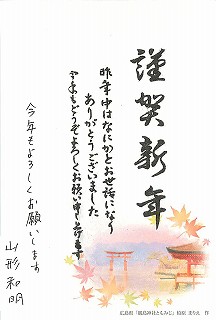 謹賀新年
昨年中はなにかとお世話になり
ありがとうございました
今年もどうぞよろしくお願い申し上げます
今年もよろしくお願いします
山形和明
広島県「厳島神社ともみじ」 まりえ 作